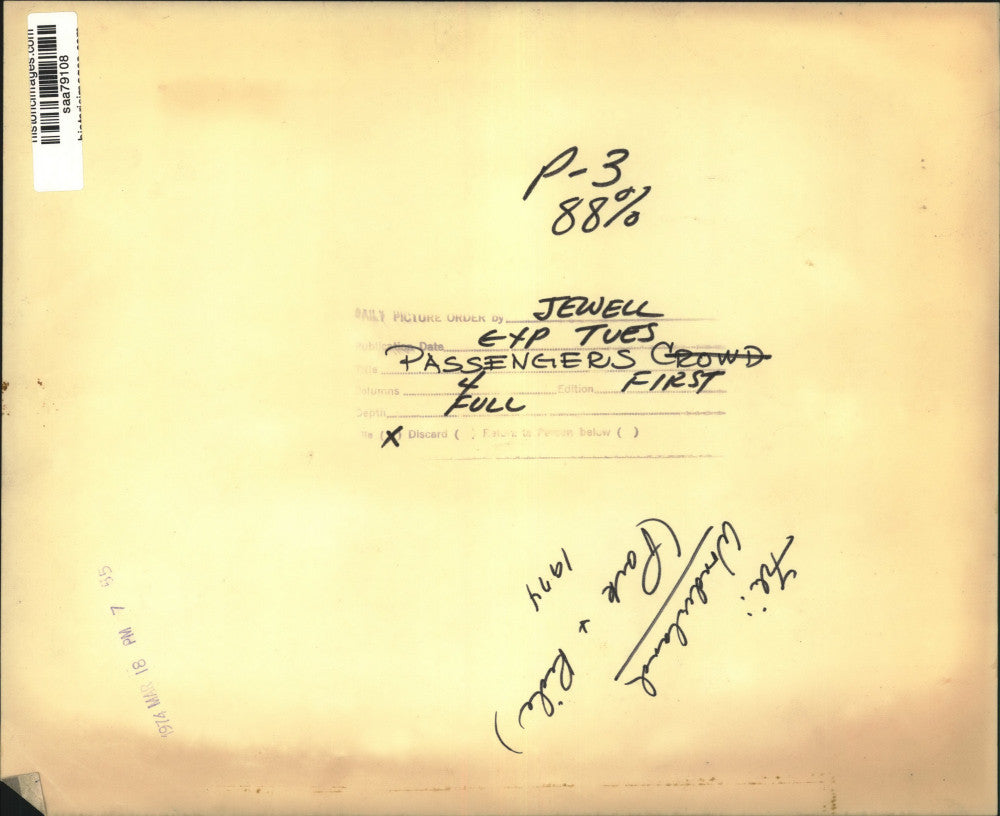 historicimages.com
saa79108
P-3
88%
DAILY PICTURE ORDER by JEWELL
Publication Date EXP TUES
Title PASSENGERS CROWD
Columns 4 Edition FIRST
Depth FULL
File (X) Discard ( ) Return to Person below ( )
File:
Wonderland
(Park + Ride)
1974
1974 MAR 18 PM 7 55